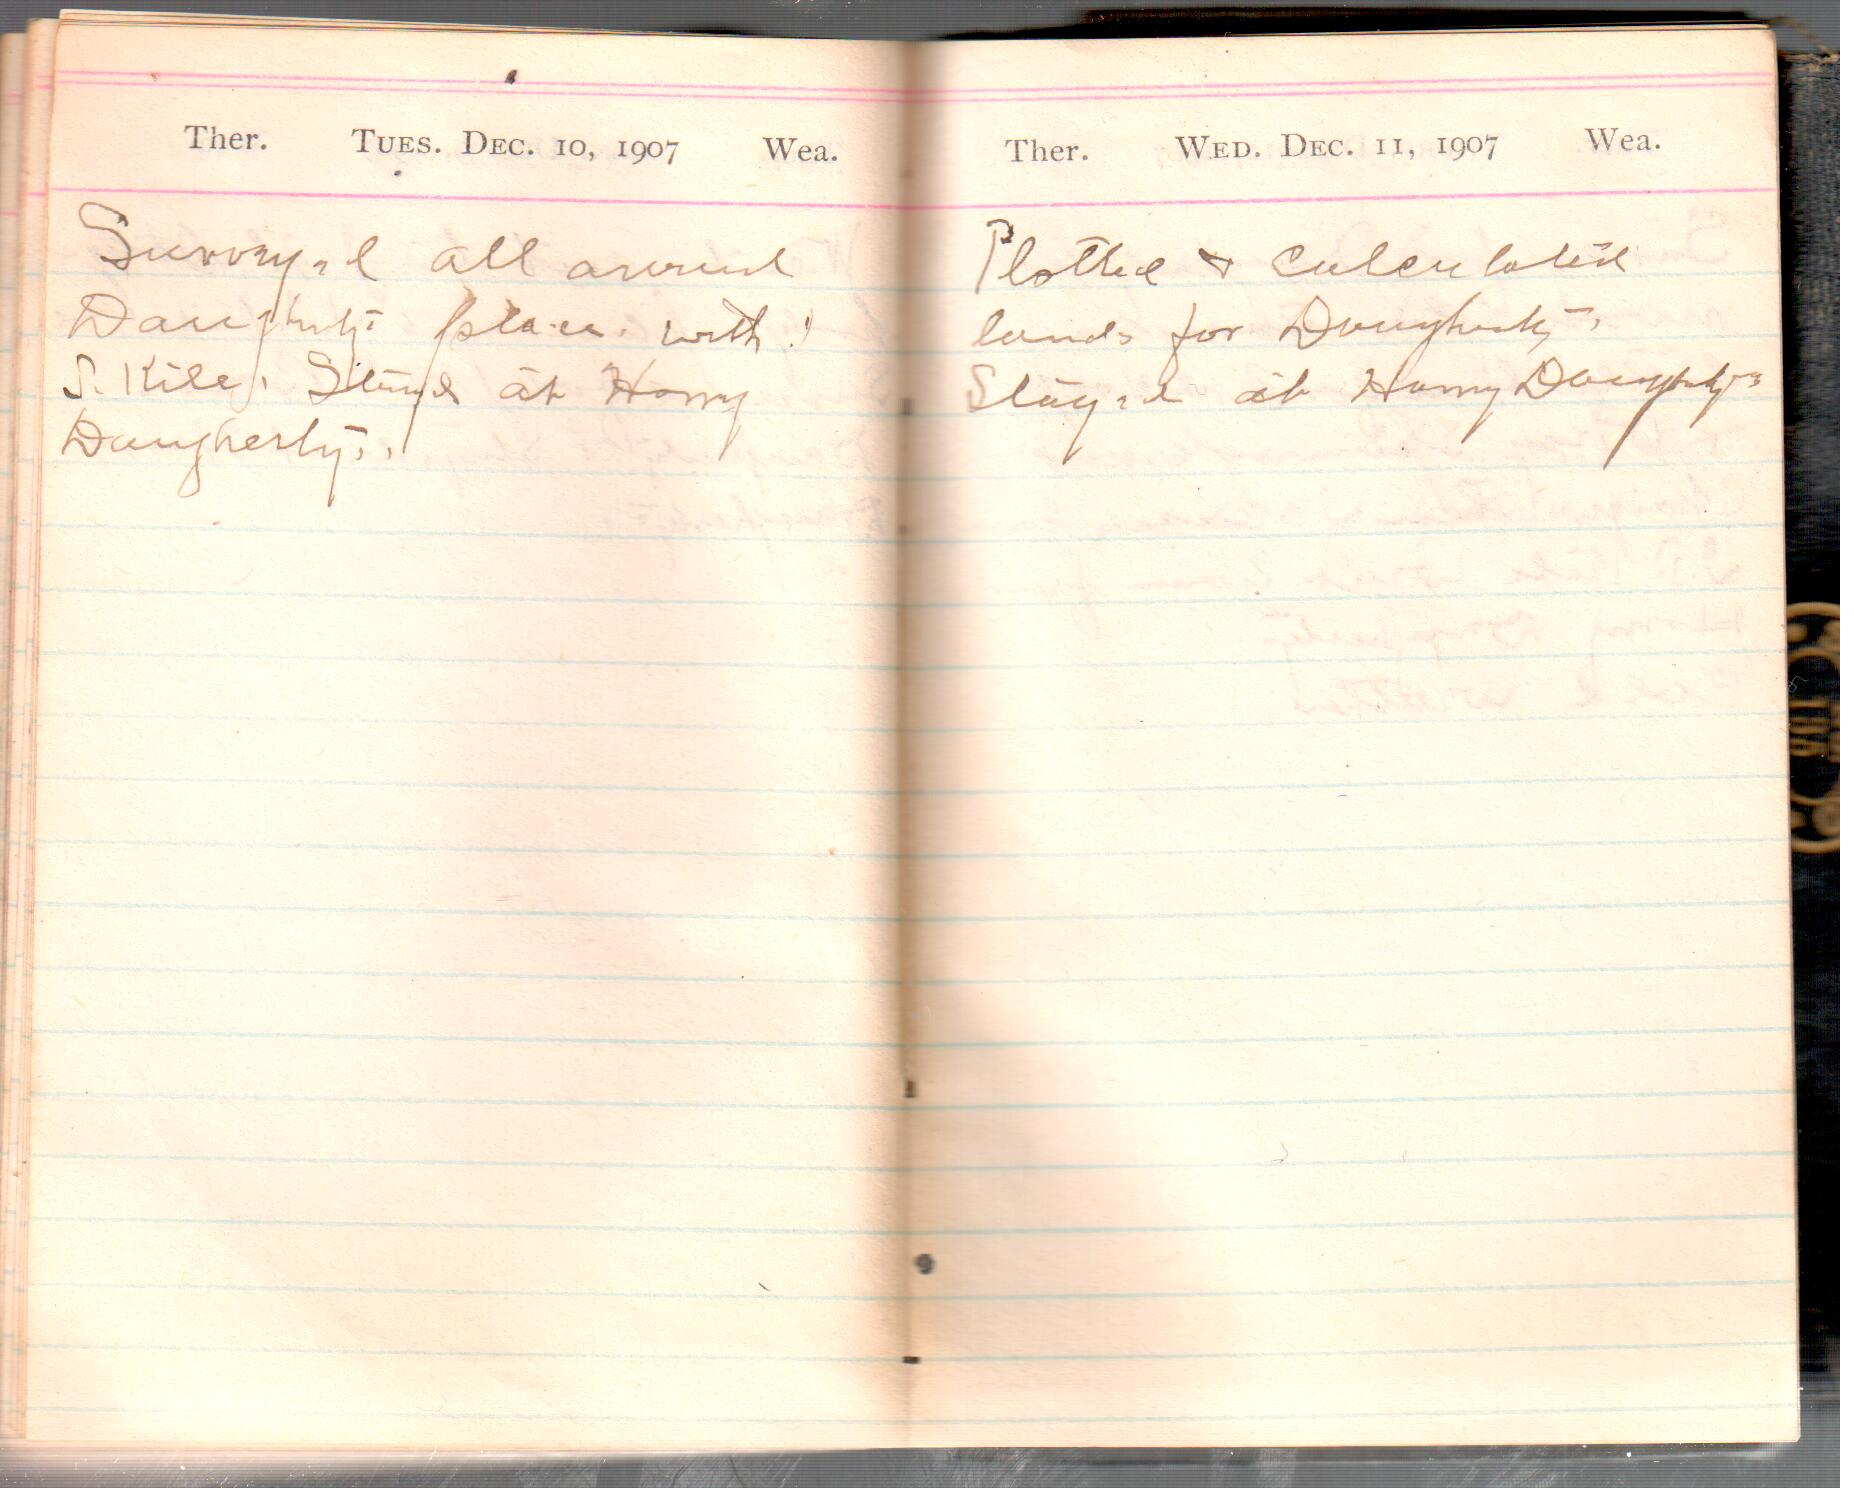 Ther. Tues. Dec. 10, 1907 Wea.
Surveyed all around
Daugherty's place with
S. Kile. Stayed at Harry
Daugherty's.
Ther. Wed. Dec. 11, 1907 Wea.
Plotted & calculated
lands for Daugherty's.
Stayed at Harry Daugherty's